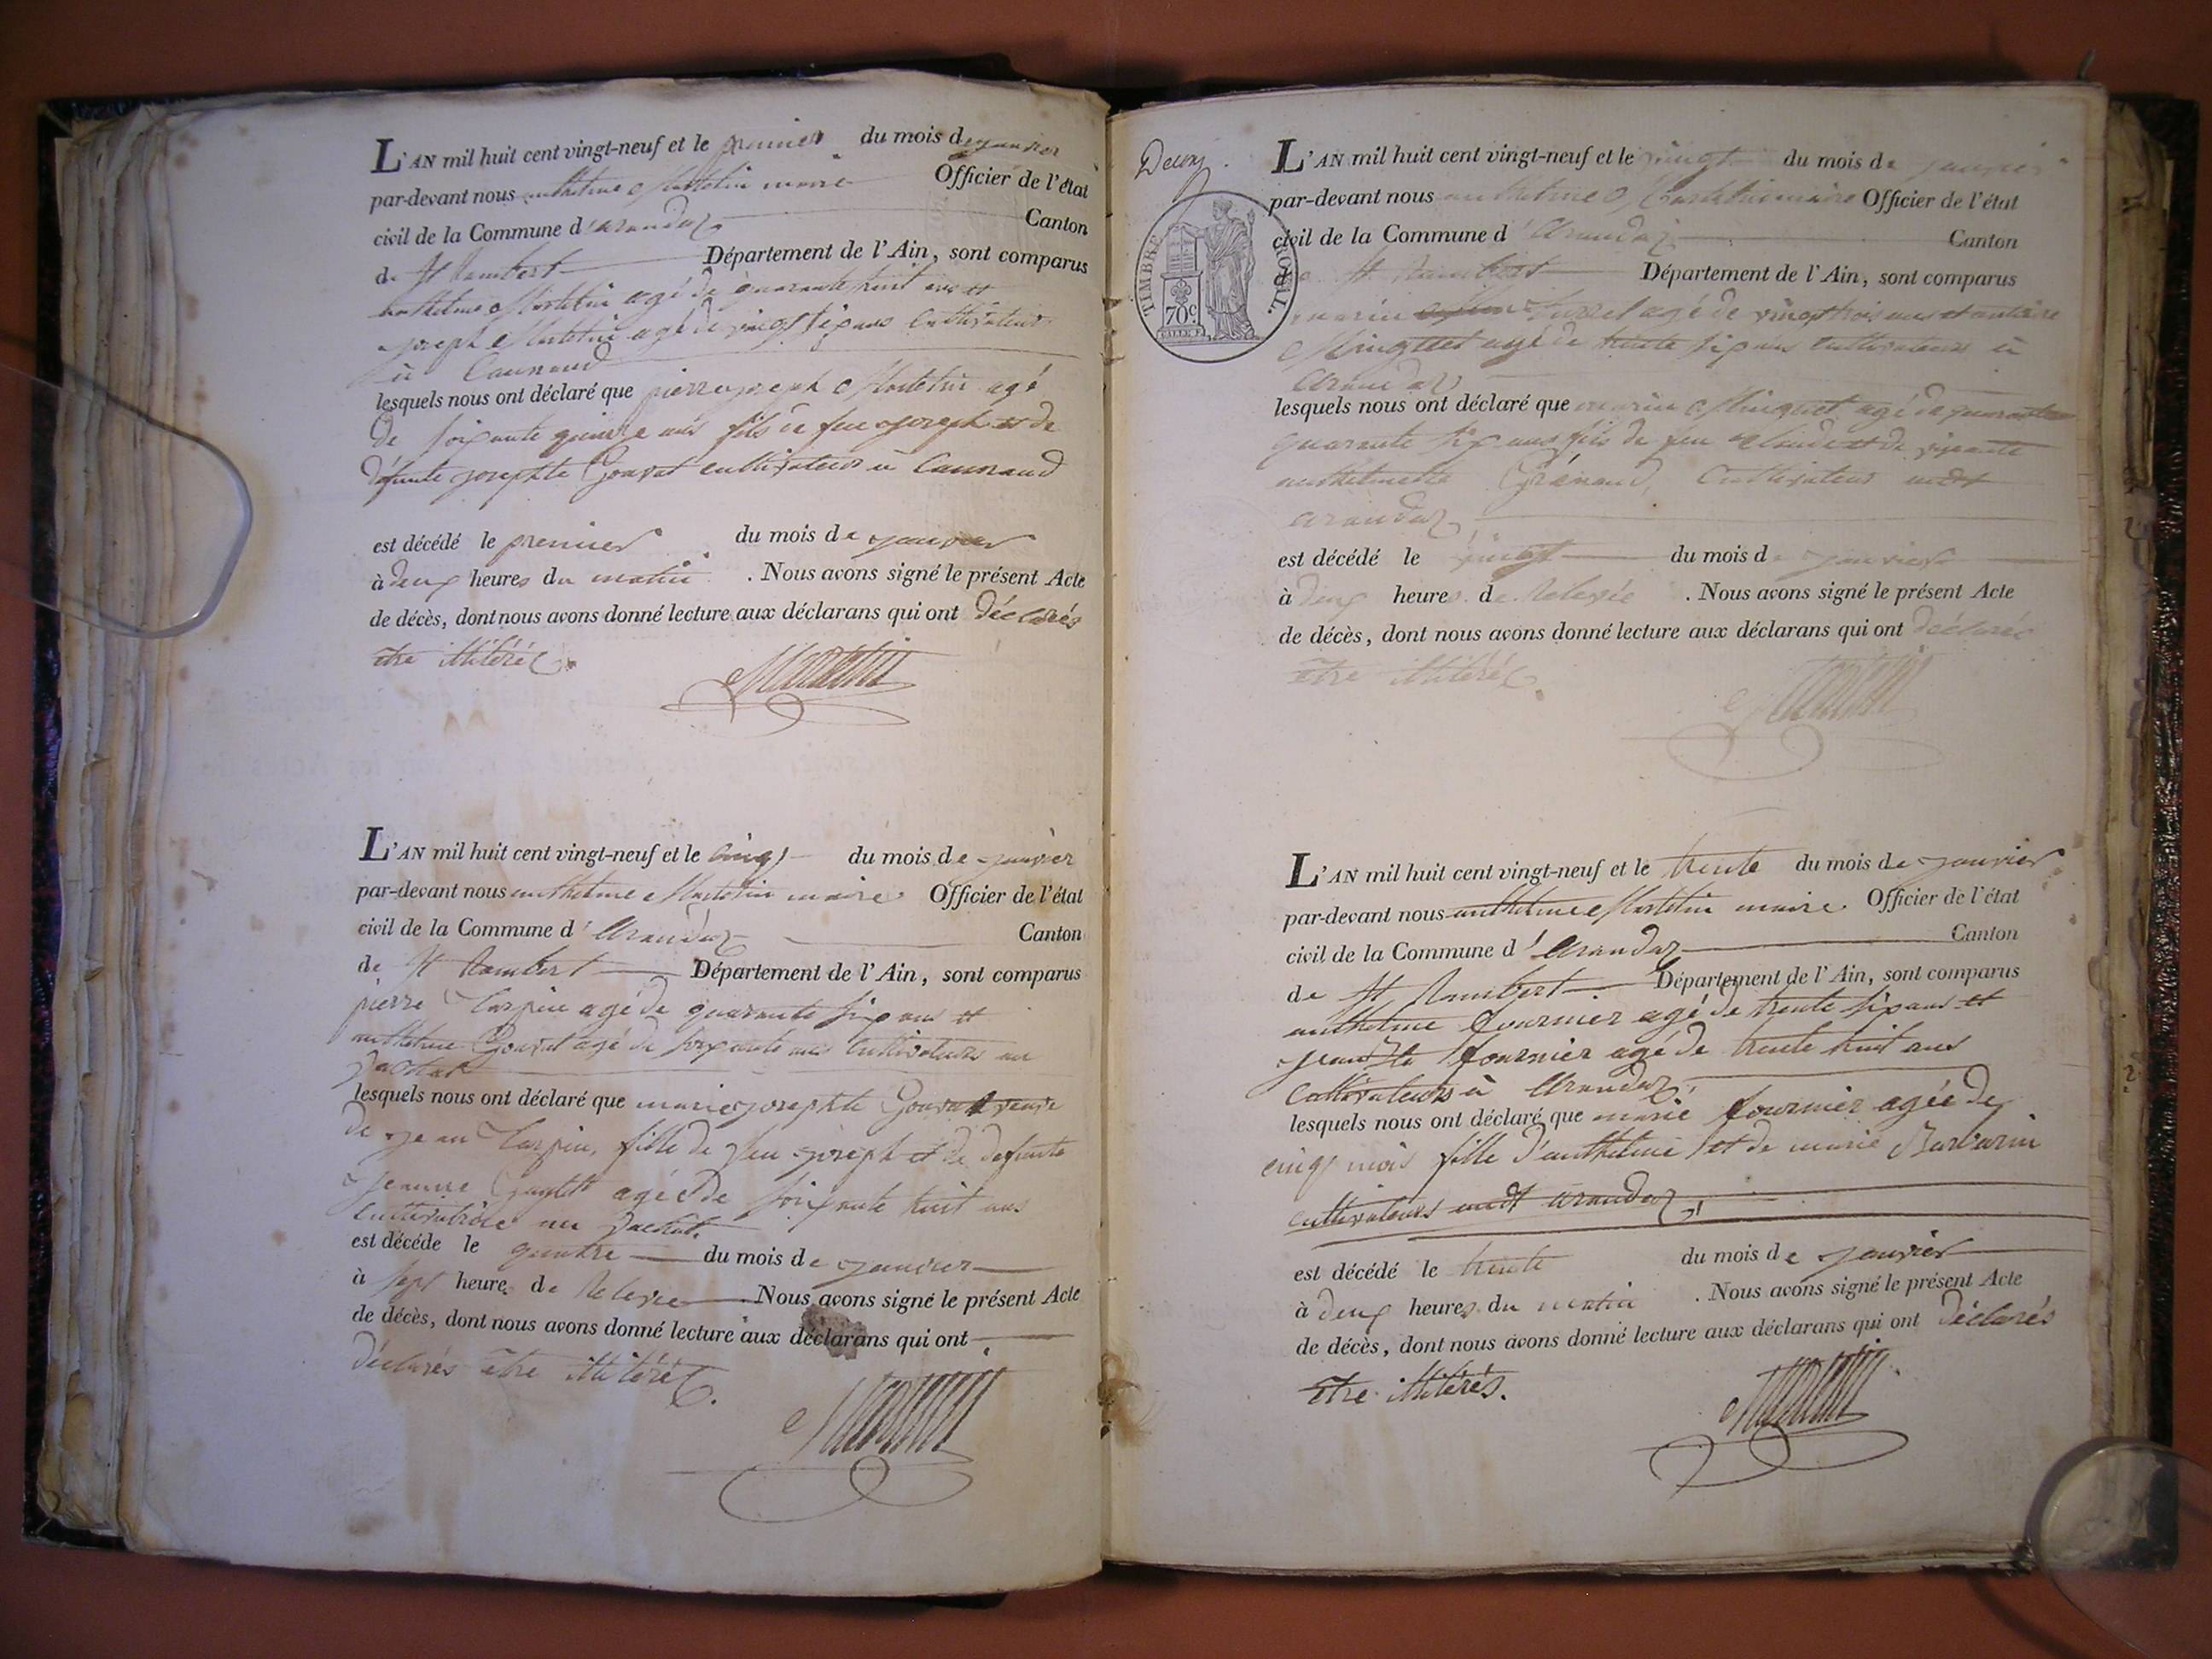 L'AN mil huit cent vingt-neuf et le premier du mois de janvier
par-devant nous anthelme Martetin maire Officier de l'état
civil de la Commune d'arandaz Canton
de St Rambert Département de l'Ain, sont comparus
anthelme Martetin agé de quarante huit ans et
joseph Martetin agé de vingt six ans cultivateurs
à
lesquels nous ont déclaré que pierre joseph Martetin agé
de soixante quinze ans fils de feu joseph et de
défunte josephte Gouvat cultivateur à
est décédé le premier du mois de janvier
à deux heures du matin . Nous avons signé le présent Acte
de décès, dont nous avons donné lecture aux déclarans qui ont déclarés
etre illitérés.
Martetin
L'AN mil huit cent vingt-neuf et le cinq du mois de janvier
par-devant nous anthelme Martetin maire Officier de l'état
civil de la Commune d'Arandaz Canton
de St Rambert Département de l'Ain, sont comparus
pierre Carpin agé de quarante six ans et
anthelme Gouvat agé de soixante ans cultivateurs au
lesquels nous ont déclaré que marie josephte Gouvat veuve
de jean Carpin, fille de feu joseph et de defunte
jeanne agée de soixante huit ans
cultivatrice au
est décédé le quatre du mois de janvier
à sept heure de Relevée . Nous avons signé le présent Acte
de décès, dont nous avons donné lecture aux déclarans qui ont
déclarés etre illitérés.
Martetin
TIMBRE ROYAL.
70 c
L'AN mil huit cent vingt-neuf et le vingt du mois de janvier
par-devant nous anthelme Martetin maire Officier de l'état
civil de la Commune d'Arandaz Canton
de St Rambert Département de l'Ain, sont comparus
marin agé de vingt trois ans et
Minguet agé de trente six ans cultivateurs à
Arandaz
lesquels nous ont déclaré que marin Minguet agé de quarante
quarante six ans fils de feu Claude et de vivante
anthelmette Grénaud, Cultivateur audt
arandaz
est décédé le vingt du mois de janvier
à deux heures de Relevée . Nous avons signé le présent Acte
de décès, dont nous avons donné lecture aux déclarans qui ont déclarés
etre illitérés.
Martetin
L'AN mil huit cent vingt-neuf et le trente du mois de janvier
par-devant nous anthelme Martetin maire Officier de l'état
civil de la Commune d'Arandaz Canton
de St Rambert Département de l'Ain, sont comparus
anthelme fournier agé de trente six ans et
jean Bte fournier agé de trente huit ans
Cultivateurs à Arandaz,
lesquels nous ont déclaré que marie fournier agée de
cinq mois fille d'anthelme et de marie Barbarin
cultivateurs audt arandaz,
est décédé le trente du mois de janvier
à deux heures du matin . Nous avons signé le présent Acte
de décès, dont nous avons donné lecture aux déclarans qui ont déclarés
etre illitérés.
Martetin